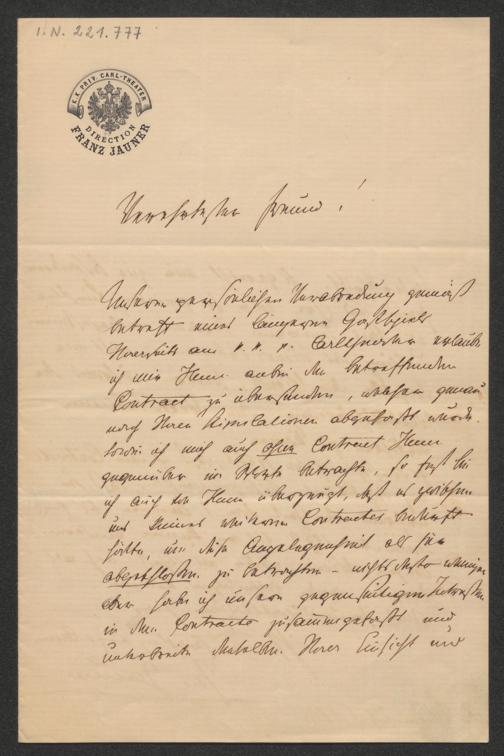 I. N. 221.777
K.K. PRIV. CARL-THEATER
DIRECTION
FRANZ JAUNER
Verehrtester Freund!
Unserer persönlichen Verabredung gemäß
betreff eines längeren Gastspiels
Ihrerseits am k. k. p. Carltheater erlaube
ich mir Ihnen anbei den betreffenden
Contract zu übersenden, welcher genau
nach Ihren Stipulationen abgefaßt wurde.
Sowie ich mich auch ohne Contract Ihnen
gegenüber im Worte betrachte, so fest bin
ich auch von Ihnen überzeugt, daß es zwischen
uns keines weiteren Contractes bedurft
hätte, um diese Angelegenheit als fix
abgeschlossen zu betrachten – nichts desto weniger
aber habe ich unsere gegenseitigen Interessen
in dem Contracte zusammengefaßt und
unterbreite denselben Ihrer Einsicht und